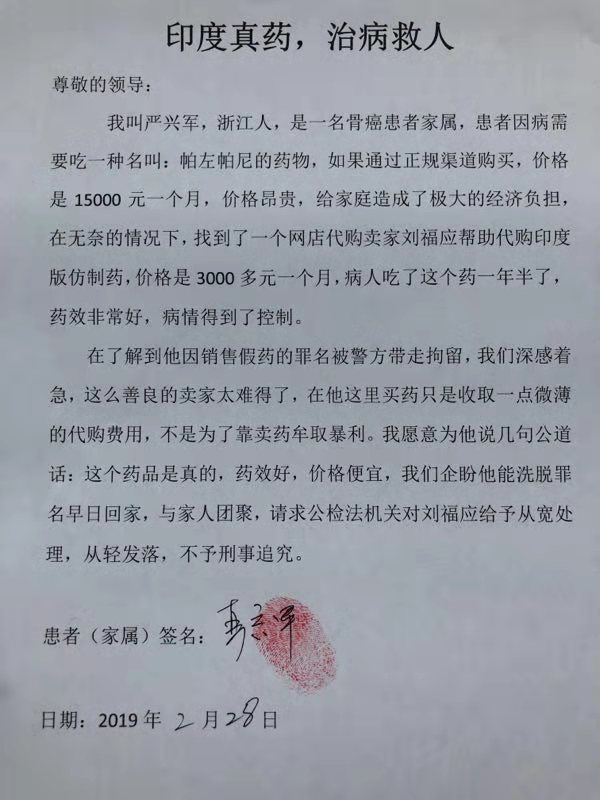 印度真药，治病救人
尊敬的领导：
我叫严兴军，浙江人，是一名骨癌患者家属，患者因病需
要吃一种名叫：帕左帕尼的药物，如果通过正规渠道购买，价格
是 15000 元一个月，价格昂贵，给家庭造成了极大的经济负担，
在无奈的情况下，找到了一个网店代购卖家刘福应帮助代购印度
版仿制药，价格是 3000 多元一个月，病人吃了这个药一年半了，
药效非常好，病情得到了控制。
在了解到他因销售假药的罪名被警方带走拘留，我们深感着
急，这么善良的卖家太难得了，在他这里买药只是收取一点微薄
的代购费用，不是为了靠卖药牟取暴利。我愿意为他说几句公道
话：这个药品是真的，药效好，价格便宜，我们企盼他能洗脱罪
名早日回家，与家人团聚，请求公检法机关对刘福应给予从宽处
理，从轻发落，不予刑事追究。
患者（家属）签名：
日期：2019 年 2 月 28 日